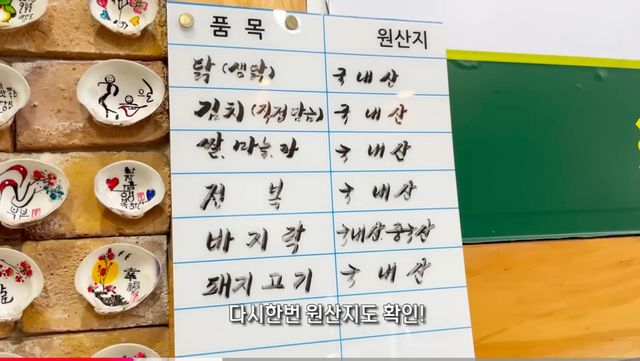 품 목 원산지
닭 (생닭) 국 내 산
김치 (직접담금) 국 내 산
쌀, 마늘, 파 국 내 산
전 복 국 내 산
바 지 락 국내산 중국산
돼지 고기 국 내 산
다시한번 원산지도 확인!